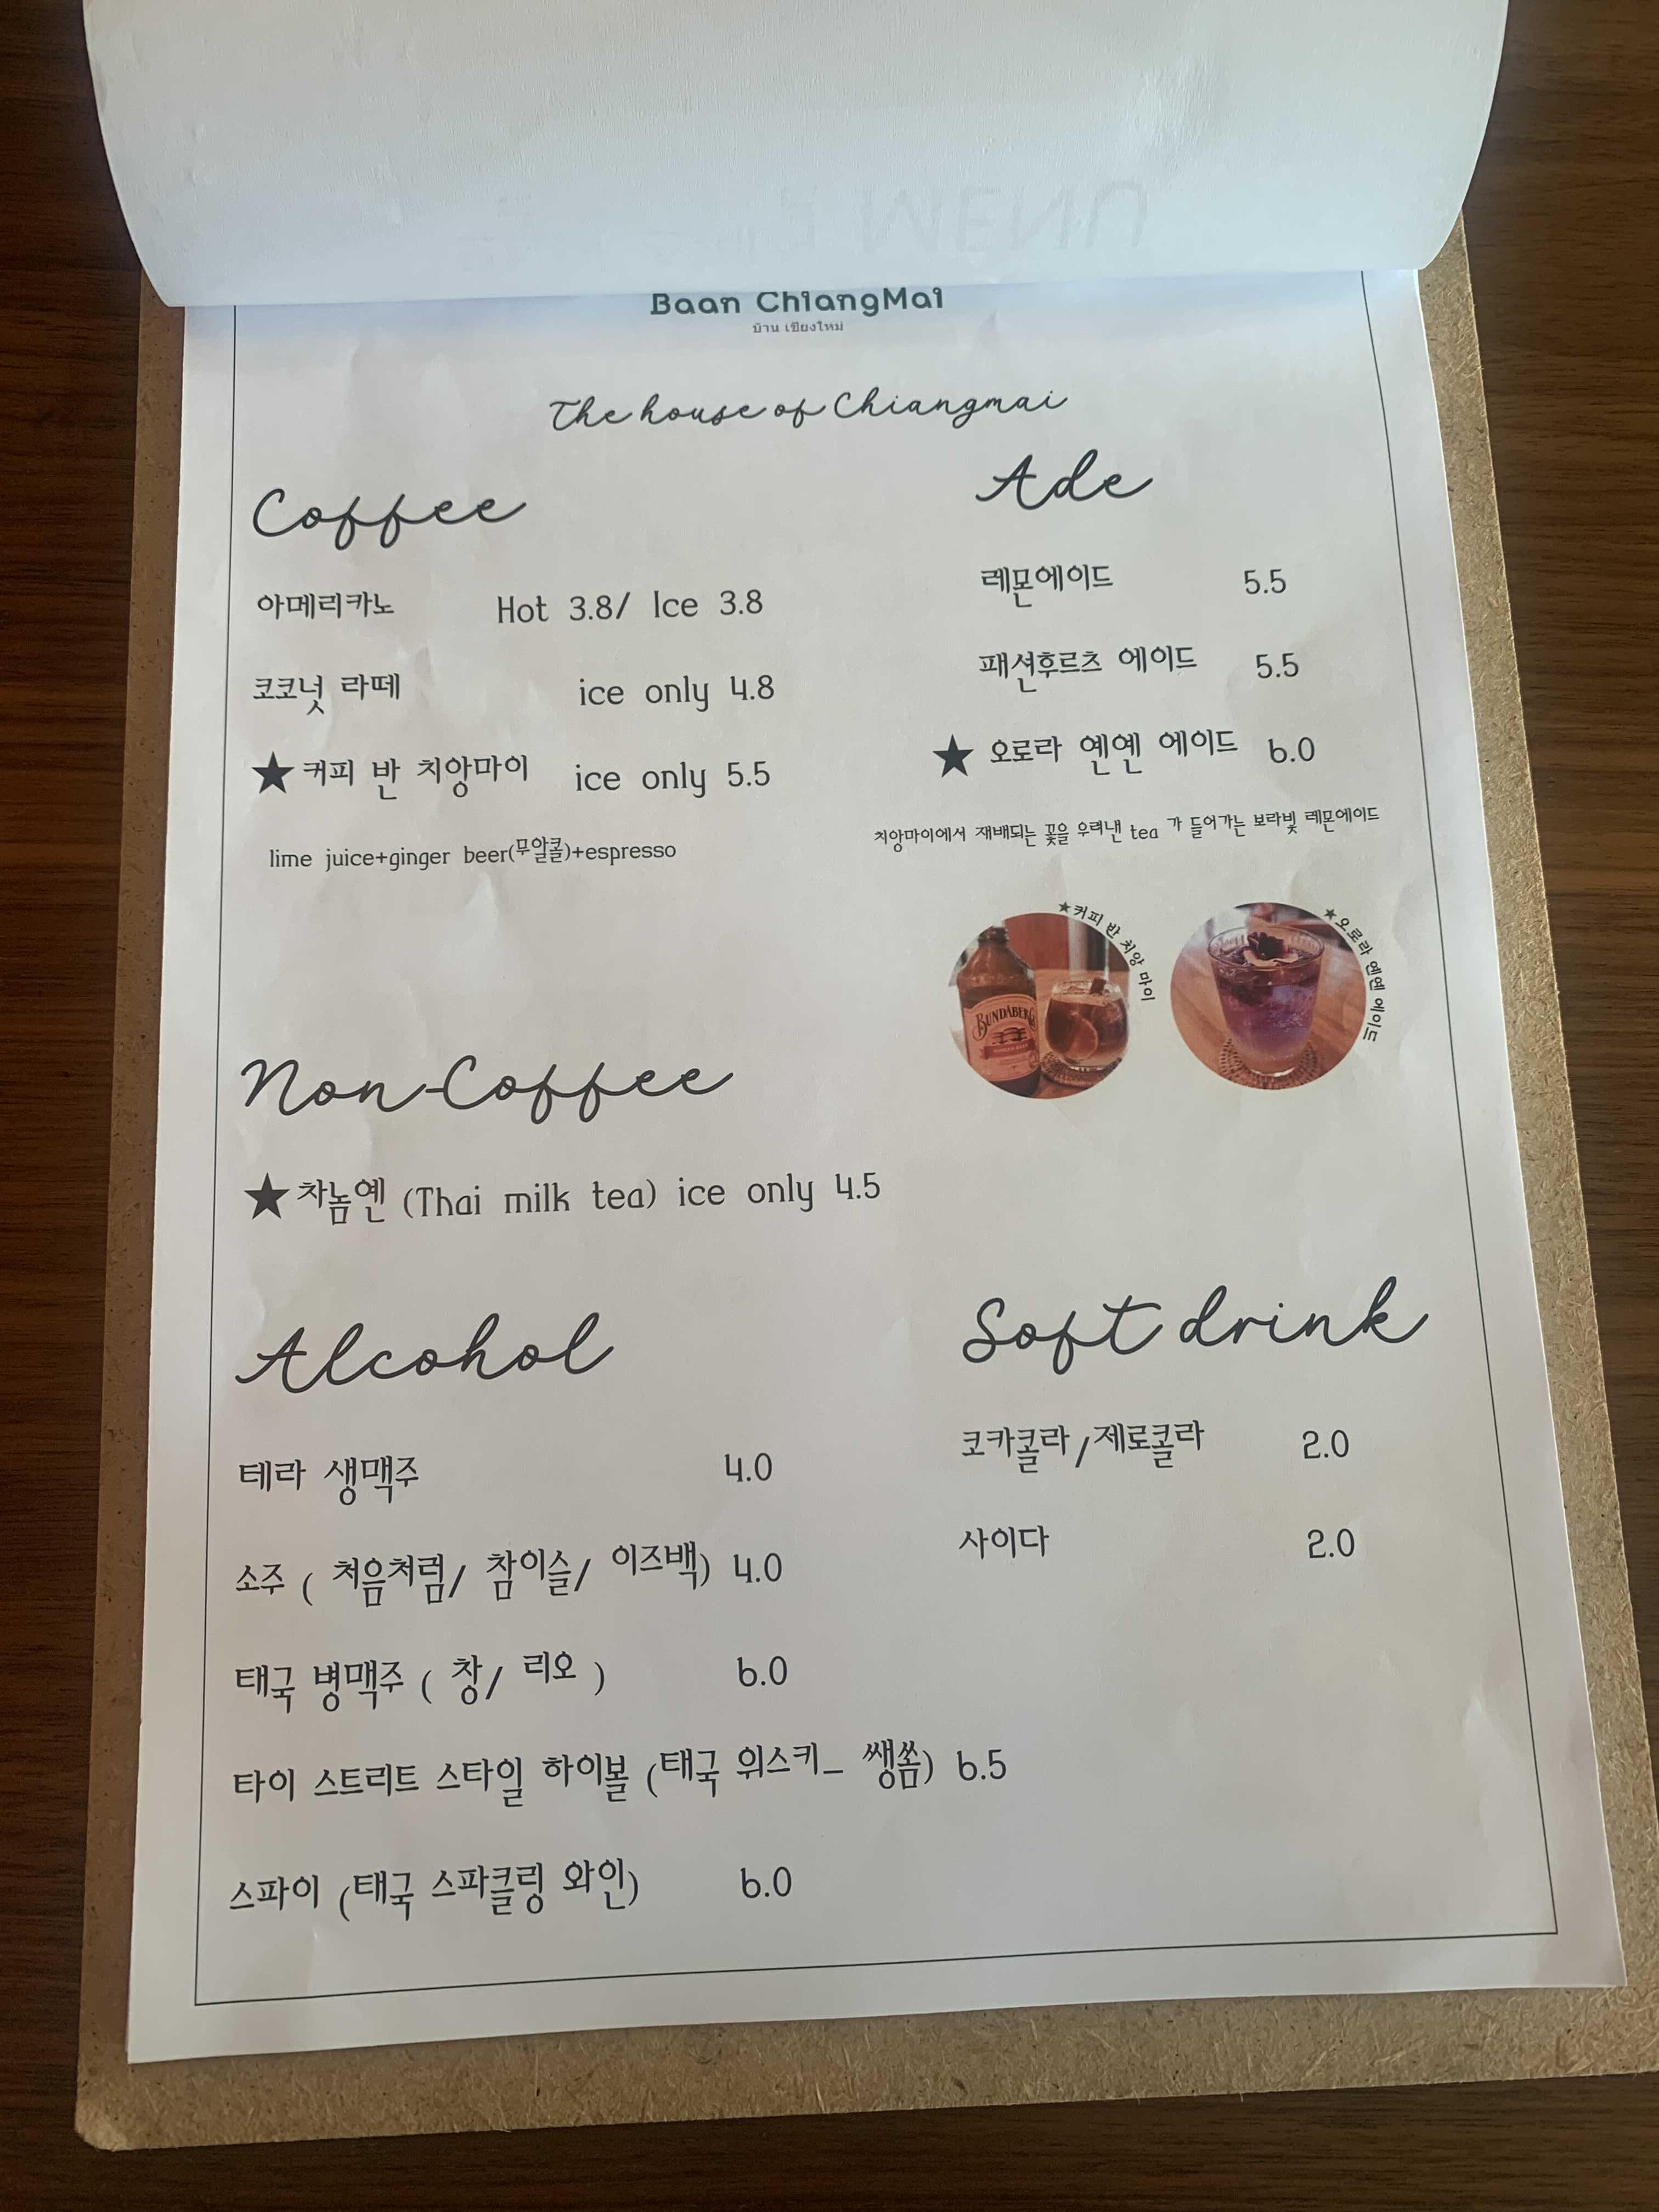 MENU
Baan ChiangMai
บ้าน เชียงใหม่
The house of Chiangmai
Coffee
아메리카노 Hot 3.8/ Ice 3.8
코코넛 라떼 ice only 4.8
★커피 반 치앙마이 ice only 5.5
lime juice+ginger beer(무알콜)+espresso
Ade
레몬에이드 5.5
패션후르츠 에이드 5.5
★ 오로라 옌옌 에이드 6.0
치앙마이에서 재배되는 꽃을 우려낸 tea 가 들어가는 보라빛 레몬에이드
★커피 반 치앙 마이
BUNDABERG
★오로라 옌옌 에이드
Non-Coffee
★차놈옌 (Thai milk tea) ice only 4.5
Alcohol
테라 생맥주 4.0
소주 ( 처음처럼/ 참이슬/ 이즈백) 4.0
태국 병맥주 ( 창/ 리오 ) 6.0
타이 스트리트 스타일 하이볼 (태국 위스키_ 쌩쏨) 6.5
스파이 (태국 스파클링 와인) 6.0
Soft drink
코카콜라/제로콜라 2.0
사이다 2.0